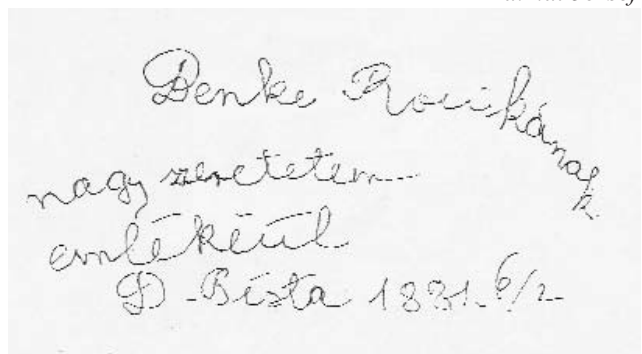 Benke Rózikának
nagy szeretetem
emlékéül
D-Bista 1881. 6/2